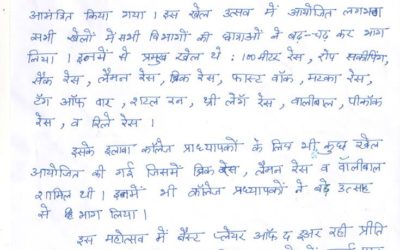 आमंत्रित किया गया। इस खेल उत्सव में आयोजित लगभग
सभी खेलों में सभी विभागों की छात्राओं ने बढ़-चढ़ कर भाग
लिया। इनमें से प्रमुख खेल थे : 100 मीटर रेस, रोप स्कीपिंग,
सैक रेस, लैमन रेस, ब्रिक रेस, फास्ट वॉक, मटका रेस,
टॅग ऑफ वार, शटल रन, थ्री लेग रेस, वालीबाल, पीकॉक
रेस, व रिले रेस।
इसके इलावा कॉलेज प्राध्यापकों के लिए भी कुछ खेल
आयोजित की गई जिसमें ब्रिक रेस, लैमन रेस व वॉलीबाल
शामिल थी। इनमें भी कॉलेज प्रध्यापकों ने बड़े उत्साह
से भाग लिया।
इस महोत्सव में बैस्ट प्लेयर ऑफ द इअर रही प्रीति